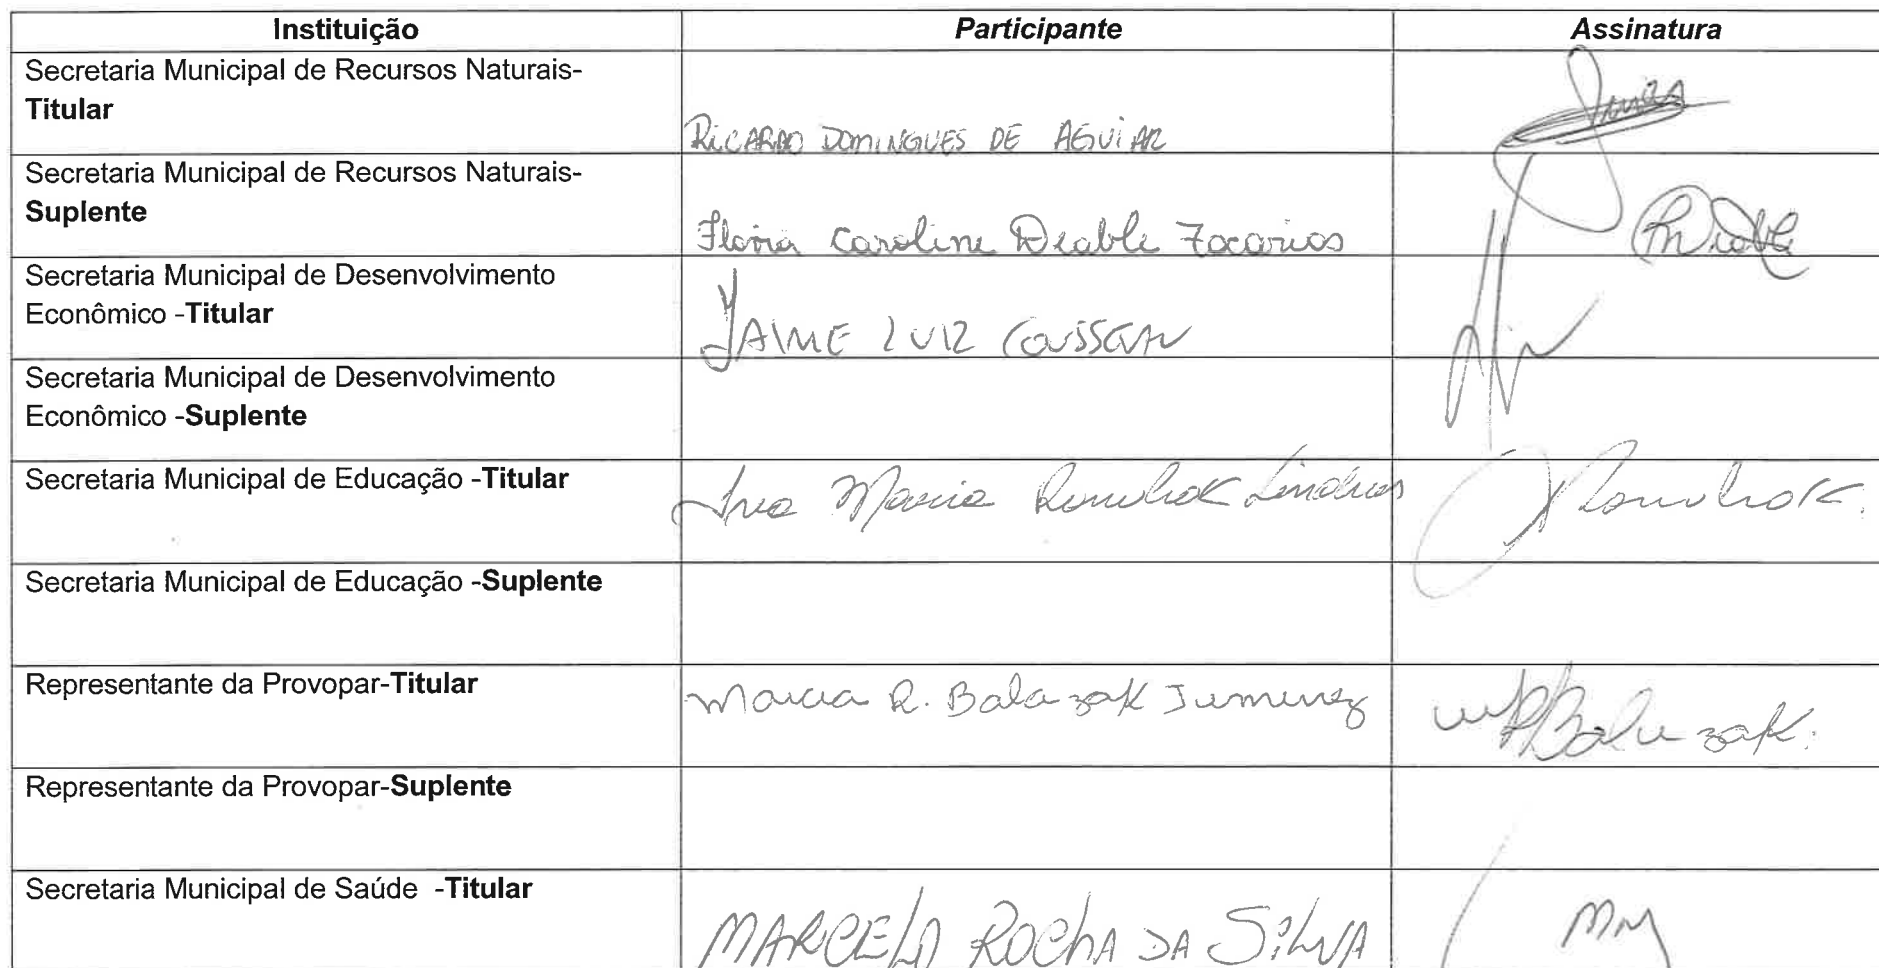 Instituição Participante Assinatura
Secretaria Municipal de Recursos Naturais-
Titular
RICARDO DOMINGUES DE AGUIAR
Secretaria Municipal de Recursos Naturais-
Suplente
Flavia Caroline Deable Zacarias Deable
Secretaria Municipal de Desenvolvimento
Econômico -Titular
JAIME LUIZ
Secretaria Municipal de Desenvolvimento
Econômico -Suplente
Secretaria Municipal de Educação -Titular
Maria
Secretaria Municipal de Educação -Suplente
Representante da Provopar-Titular
Marcia R. Balazak
Representante da Provopar-Suplente
Secretaria Municipal de Saúde -Titular
MARCELO ROCHA DA SILVA